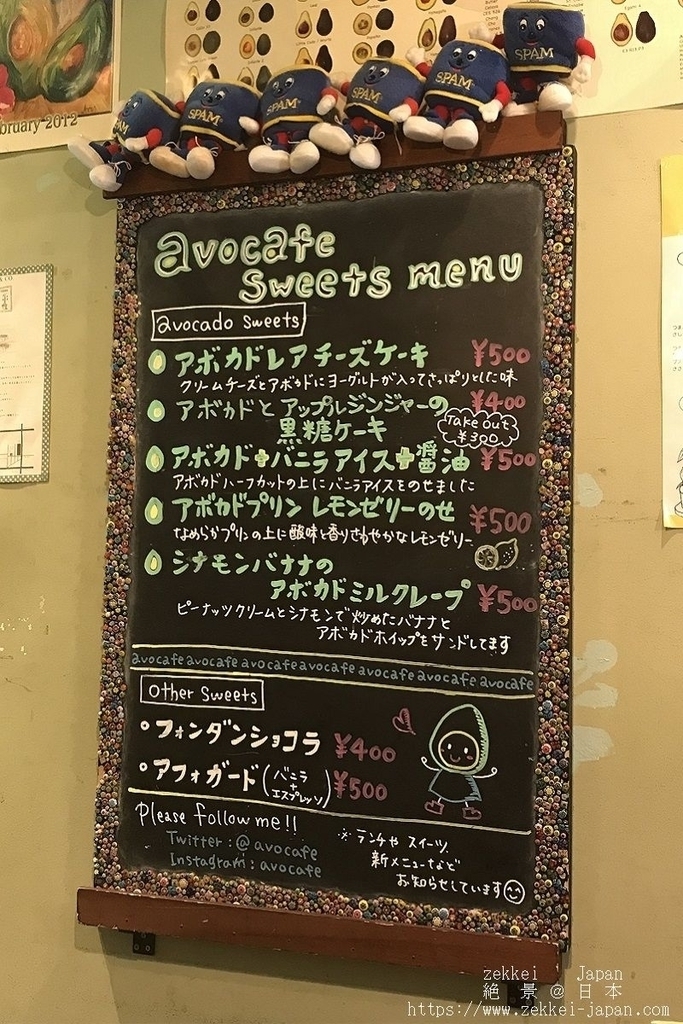 bruary 2012
SPAM
SPAM
SPAM
SPAM
SPAM
SPAM
avocafe
sweets menu
avocado sweets
アボカドレアチーズケーキ ¥500
クリームチーズとアボカドにヨーグルトが入ってさっぱりとした味
アボカドとアップルジンジャーの ¥400
黒糖ケーキ
Take out
¥300
アボカド+バニラアイス+醤油 ¥500
アボカドハーフカットの上にバニラアイスをのせました
アボカドプリン レモンゼリーのせ ¥500
なめらかプリンの上に酸味と香りさわやかなレモンゼリー
シナモンバナナの
アボカドミルクレープ ¥500
ピーナッツクリームとシナモンで炒めたバナナと
アボカドホイップをサンドしてます
avocafe avocafe avocafe avocafe avocafe avocafe avocafe
Other Sweets
フォンダンショコラ ¥400
アフォガード(バニラ+エスプレッソ) ¥500
Please follow me!!
Twitter:@avocafe
Instagram:avocafe
※ランチや スイーツ、
新メニューなど
お知らせしています
zekkei Japan
絶景@日本
https://www.zekkei-japan.com